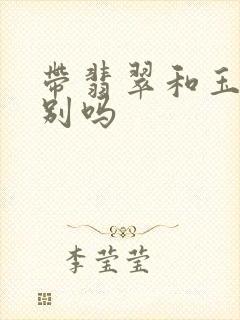 带翡翠和玉
别吗
李莹莹